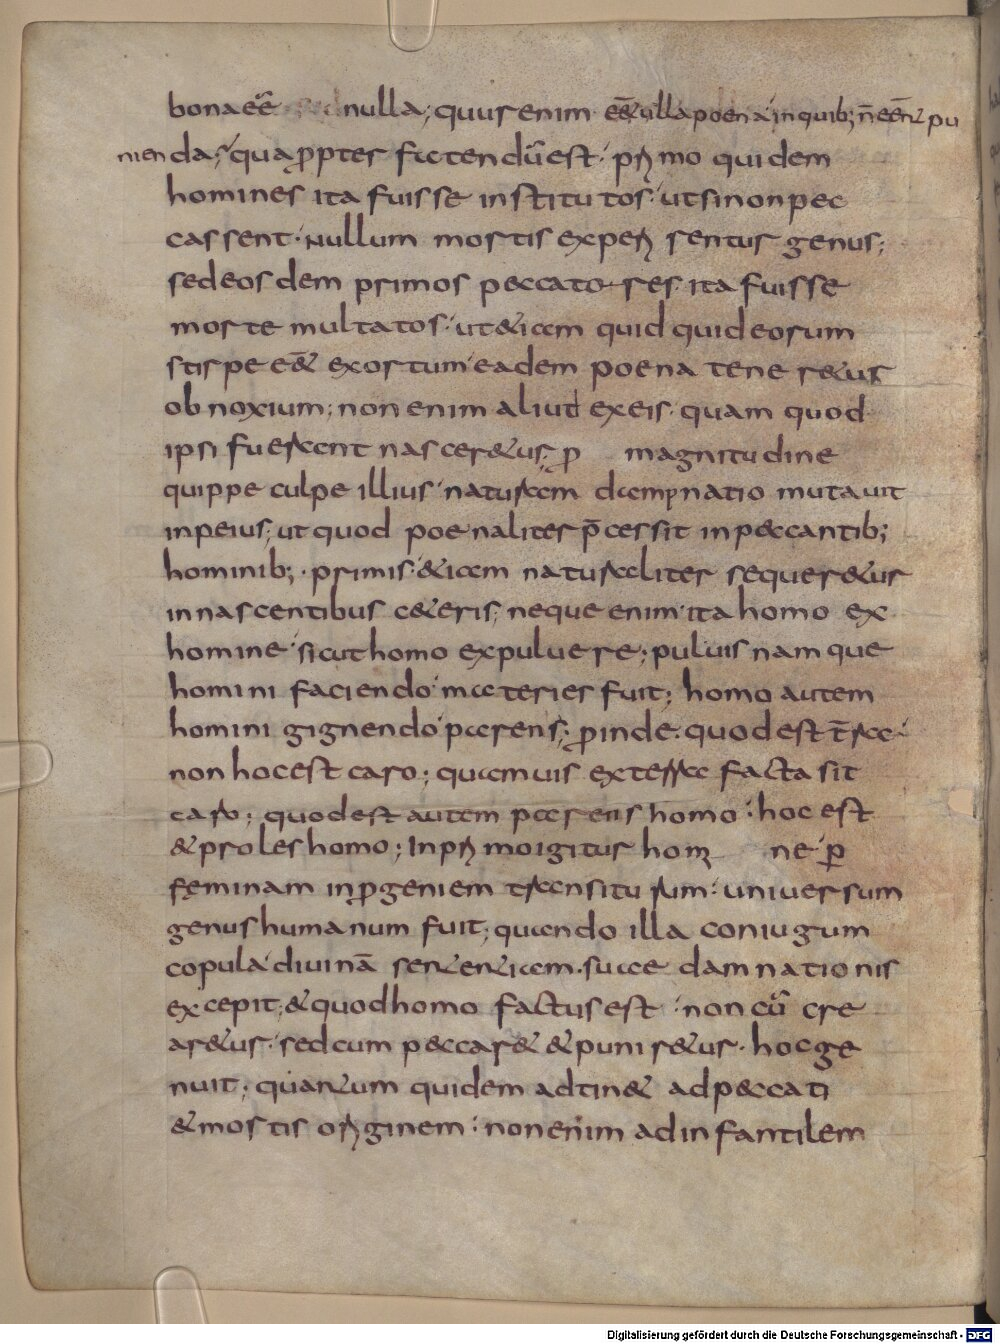 bona eẽ nulla; quur enim eẽ& ulla poena in quib; ñ eẽnt pu
nienda; quapropter fatendũ est· primo quidem
homines ita fuisse institutos· ut si non pec
cassent· nullum mortis experirentur genus;
sed eosdem primos peccatores ita fuisse
morte multatos· ut &iam quidquid eorum
stirpe eẽ& exortum· eadem poena tener&ur
obnoxium; non enim aliud ex eis· quam quod
ipsi fuerant nascer&ur; p magnitudine
quippe culpe illius· naturam dampnatio mutauit
in peius; ut quod poenaliter p̄cessit in peccantib;
hominib;· primis· &iam naturaliter sequer&ur
in nascentibus c&eris; neque enim ita homo ex
homine· sicut homo ex puluere; puluis namque
homini faciendo· materies fuit; homo autem
homini gignendo· parens; pinde· quod est t̄ra·
non hoc est caro; quamuis ex terra facta sit
caro; quod est autem parens homo· hoc est
& proles homo; In primo igitur homi ne· p
feminam in pgeniem transiturum· uniuersum
genus humanum fuit; quando illa coniugum
copula· diuinã sententiam suae damnationis
excepit; & quod homo factus est· non cũ cre
ar&ur· sed cum peccar& & punir&ur· hoc ge
nuit; quantum quidem adtin& ad peccati
& mortis originem· non enim ad infantilem
Digitalisierung gefördert durch die Deutsche Forschungsgemeinschaft - DFG